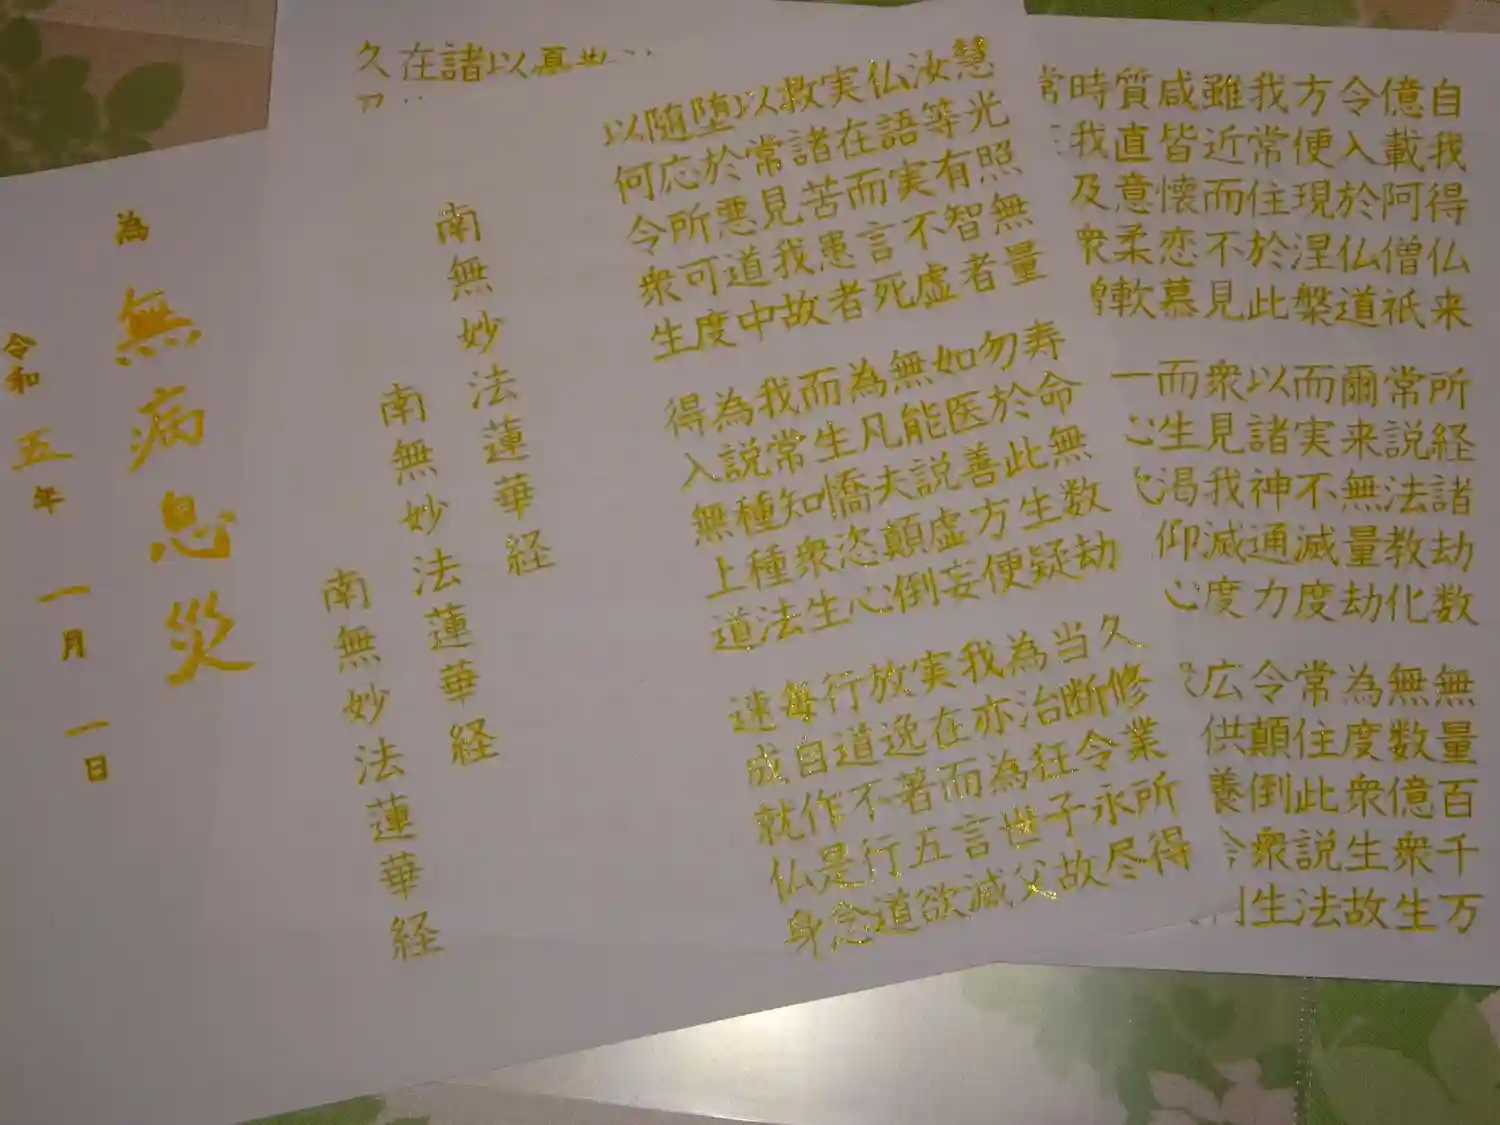 自我得仏来 所経諸劫数 無量百千万
億載阿僧祇 常説法教化 無数億衆生
令入於仏道 爾来無量劫 為度衆生故
方便現涅槃 而実不滅度 常住此説法
我常住於此 以諸神通力 令顛倒衆生
雖近而不見 衆見我滅度 広供養
咸皆懐恋慕 而生渇仰心
質直意柔軟 一心
時我及衆
常
慧光照無量 寿命無数劫 久修業所得
汝等有智者 勿於此生疑 当断令永尽
仏語実不虚 如医善方便 為治狂子故
実在而言死 無能説虚妄 我亦為世父
救諸苦患者 為凡夫顛倒 実在而言滅
以常見我故 而生憍恣心 放逸著五欲
堕於悪道中 我常知衆生 行道不行道
隨応所可度 為説種種法 毎自作是念
以何令衆生 得入無上道 速成就仏身
以
諸
在
久
南無妙法蓮華経
南無妙法蓮華経
南無妙法蓮華経
為 無病息災
令和五年一月一日